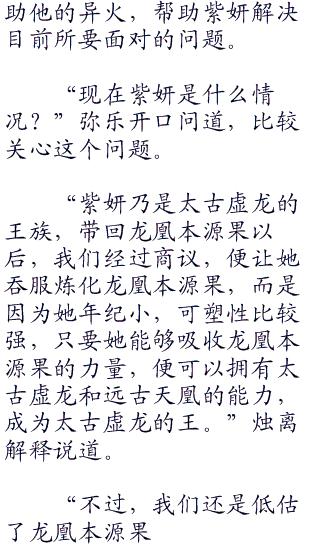 助他的异火，帮助紫妍解决
目前所要面对的问题。
“现在紫妍是什么情
况？”弥乐开口问道，比较
关心这个问题。
“紫妍乃是太古虚龙的
王族，带回龙凰本源果以
后，我们经过商议，便让她
吞服炼化龙凰本源果，而是
因为她年纪小，可塑性比较
强，只要她能够吸收龙凰本
源果的力量，便可以拥有太
古虚龙和远古天凰的能力，
成为太古虚龙的王。”烛离
解释说道。
“不过，我们还是低估
了龙凰本源果